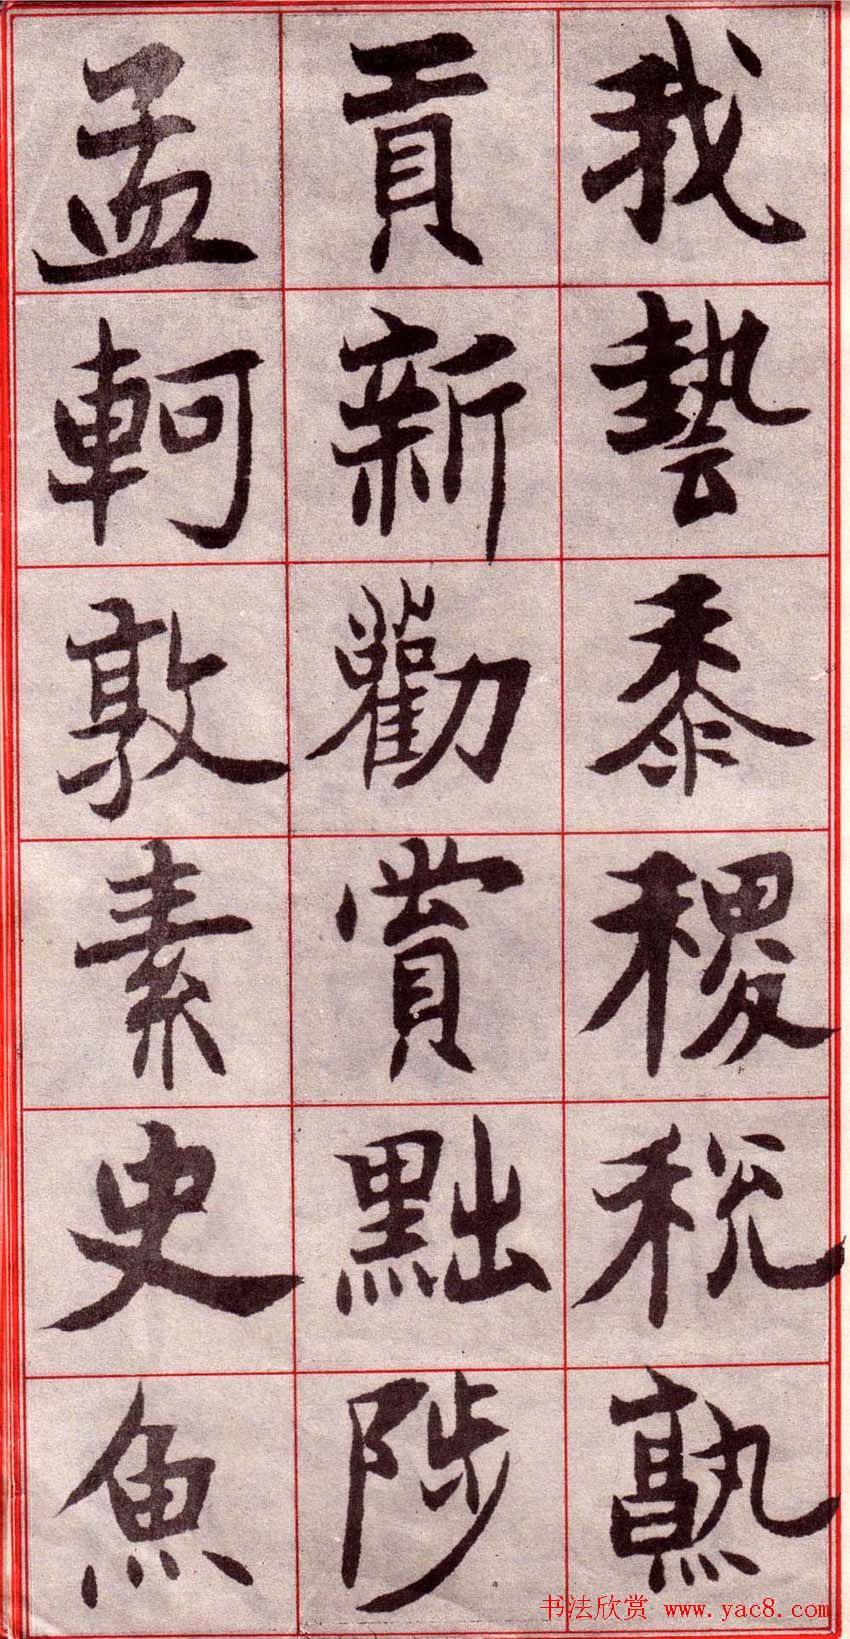 我藝黍稷税熟
貢新勸賞黜陟
孟軻敦素史魚
书法欣赏 www.yac8.com